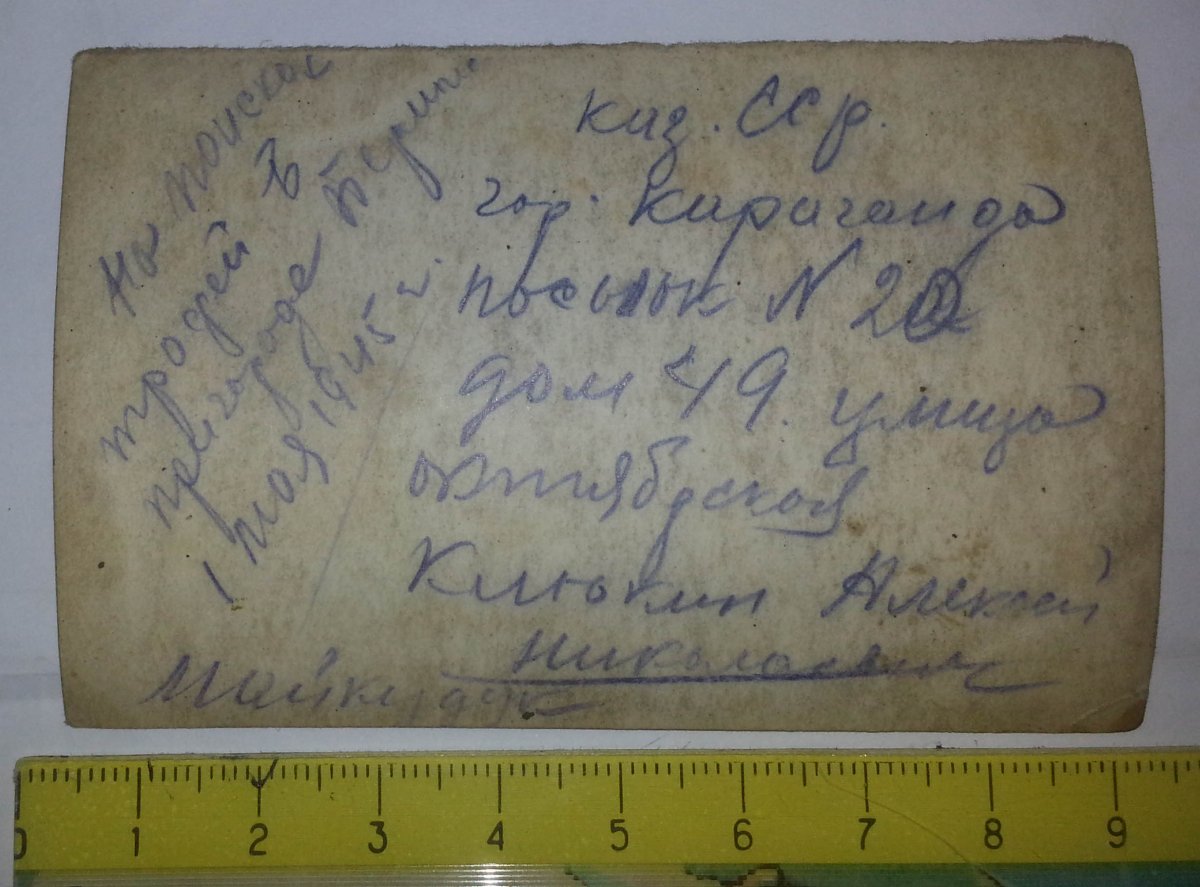 На поисках
трофей в
пригороде Берлин.
1 мая 1945 г.
Каз. ССР.
гор. Караганда
посолок N 20
дом 49. улица
октябрская
Клюкин Алексей
Николаевич
Майкудук
0 1 2 3 4 5 6 7 8 9